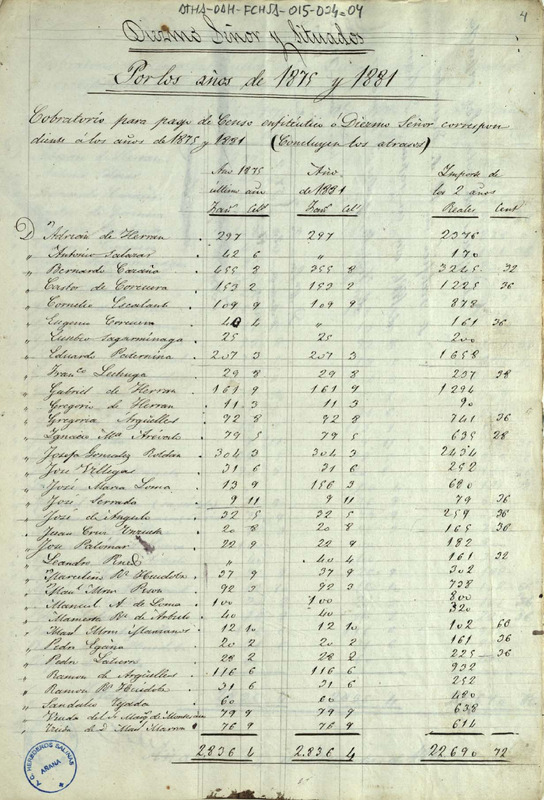 ATHA-DAH-FCHSA-015-024-04
4
Diezmo Señor y Situados
Por los años de 1875 y 1881
Cobratorio para pago de Censo enfitéutico ó Diezmo Señor correspon
diente á los años de 1875 y 1881 (Concluyen los atrasos)
Año 1875 Año Importe de
último año de 1881 los 2 años
Fanˢ Celˢ Fanˢ Celˢ Reales Cent
Dⁿ Adrian de Herran . 297 297 2376
" Antonio Salazar . 42 6 " 170
" Bernardo . 455 8 355 8 3245 32
" Castor de Corcuera . 153 2 153 2 1225 36
" Cornelio Escalante . 109 9 109 9 878
" Eugenio Corcuera . 40 4 " 161 36
" Eusebio Sagarminaga . 25 25 200
" Eduardo Pedernina . 207 3 207 3 1658
" Franᶜᵒ . 29 8 29 8 237 38
" Gabriel de Herran . 161 9 161 9 1294
" Gregorio de Herran . 11 3 11 3 90
" Gregoria Argüelles . 92 8 92 8 741 36
" Ignacio Mª Arévalo . 79 5 79 5 635 28
" Josefa Gonzalez Roldan . 304 3 304 3 2434
" Jose Villegas . 31 6 31 6 252
" José Maria Loma . 13 9 156 3 680
" José Serrada . 9 11 9 11 79 36
" José de Angulo . 32 5 32 5 259 36
" Juan Cruz . 20 8 20 8 165 36
" Jose Palomar . 22 9 22 9 182
" Leandro . " 40 4 161 32
" Marcelino . 37 9 37 9 302
" . 92 3 92 3 738
" Manuel A. de Loma . 100 100 800
" . 40 40 320
" . 12 10 12 10 102 60
" Pedro Egaña . 20 2 20 2 161 36
" Pedro . 28 2 28 2 225 36
" Ramon de Argüelles . 116 6 116 6 932
" Ramon . 31 6 31 6 252
" Sandalio Tejada . 60 60 480
" Viuda del 79 9 79 9 638
" Viuda de 76 9 76 9 614
2.836 4 2.836 4 22.690 72
HEREDEROS SALINAS
AÑANA